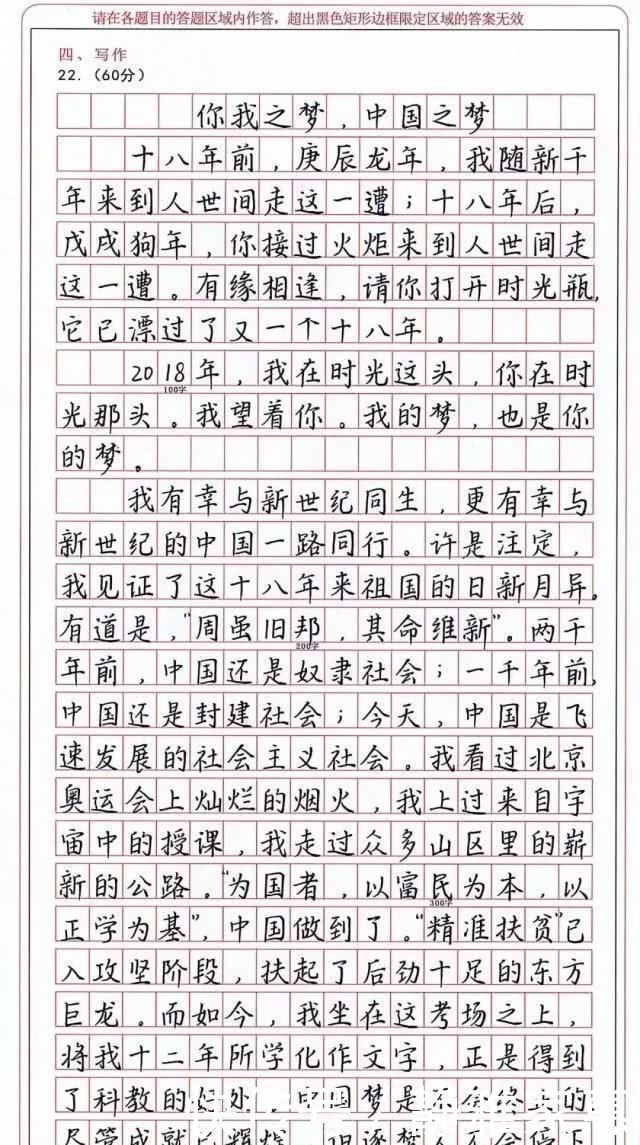 请在各题目的答题区域内作答，超出黑色矩形边框限定区域的答案无效
四、写作
22.（60分）
你我之梦，中国之梦
十八年前，庚辰龙年，我随新千
年来到人世间走这一遭；十八年后，
戊戌狗年，你接过火炬来到人世间走
这一遭。有缘相逢，请你打开时光瓶，
它已漂过了又一个十八年。
2018年，我在时光这头，你在时
100字
光那头。我望着你。我的梦，也是你
的梦。
我有幸与新世纪同生，更有幸与
新世纪的中国一路同行。许是注定，
我见证了这十八年来祖国的日新月异。
有道是，“周虽旧邦，其命维新”。两千
200字
年前，中国还是奴隶社会；一千年前，
中国还是封建社会；今天，中国是飞
速发展的社会主义社会。我看过北京
奥运会上灿烂的烟火，我上过来自宇
宙中的授课，我走过众多山区里的崭
新的公路。“为国者，以富民为本，以
300字
正学为基”，中国做到了。“精准扶贫”已
入攻坚阶段，扶起了后劲十足的东方
巨龙。而如今，我坐在这考场之上，
将我十二年所学化作文字，正是得到
了科教的好处。中国梦是 的
尽管成就已辉煌，但逐梦人不会停下